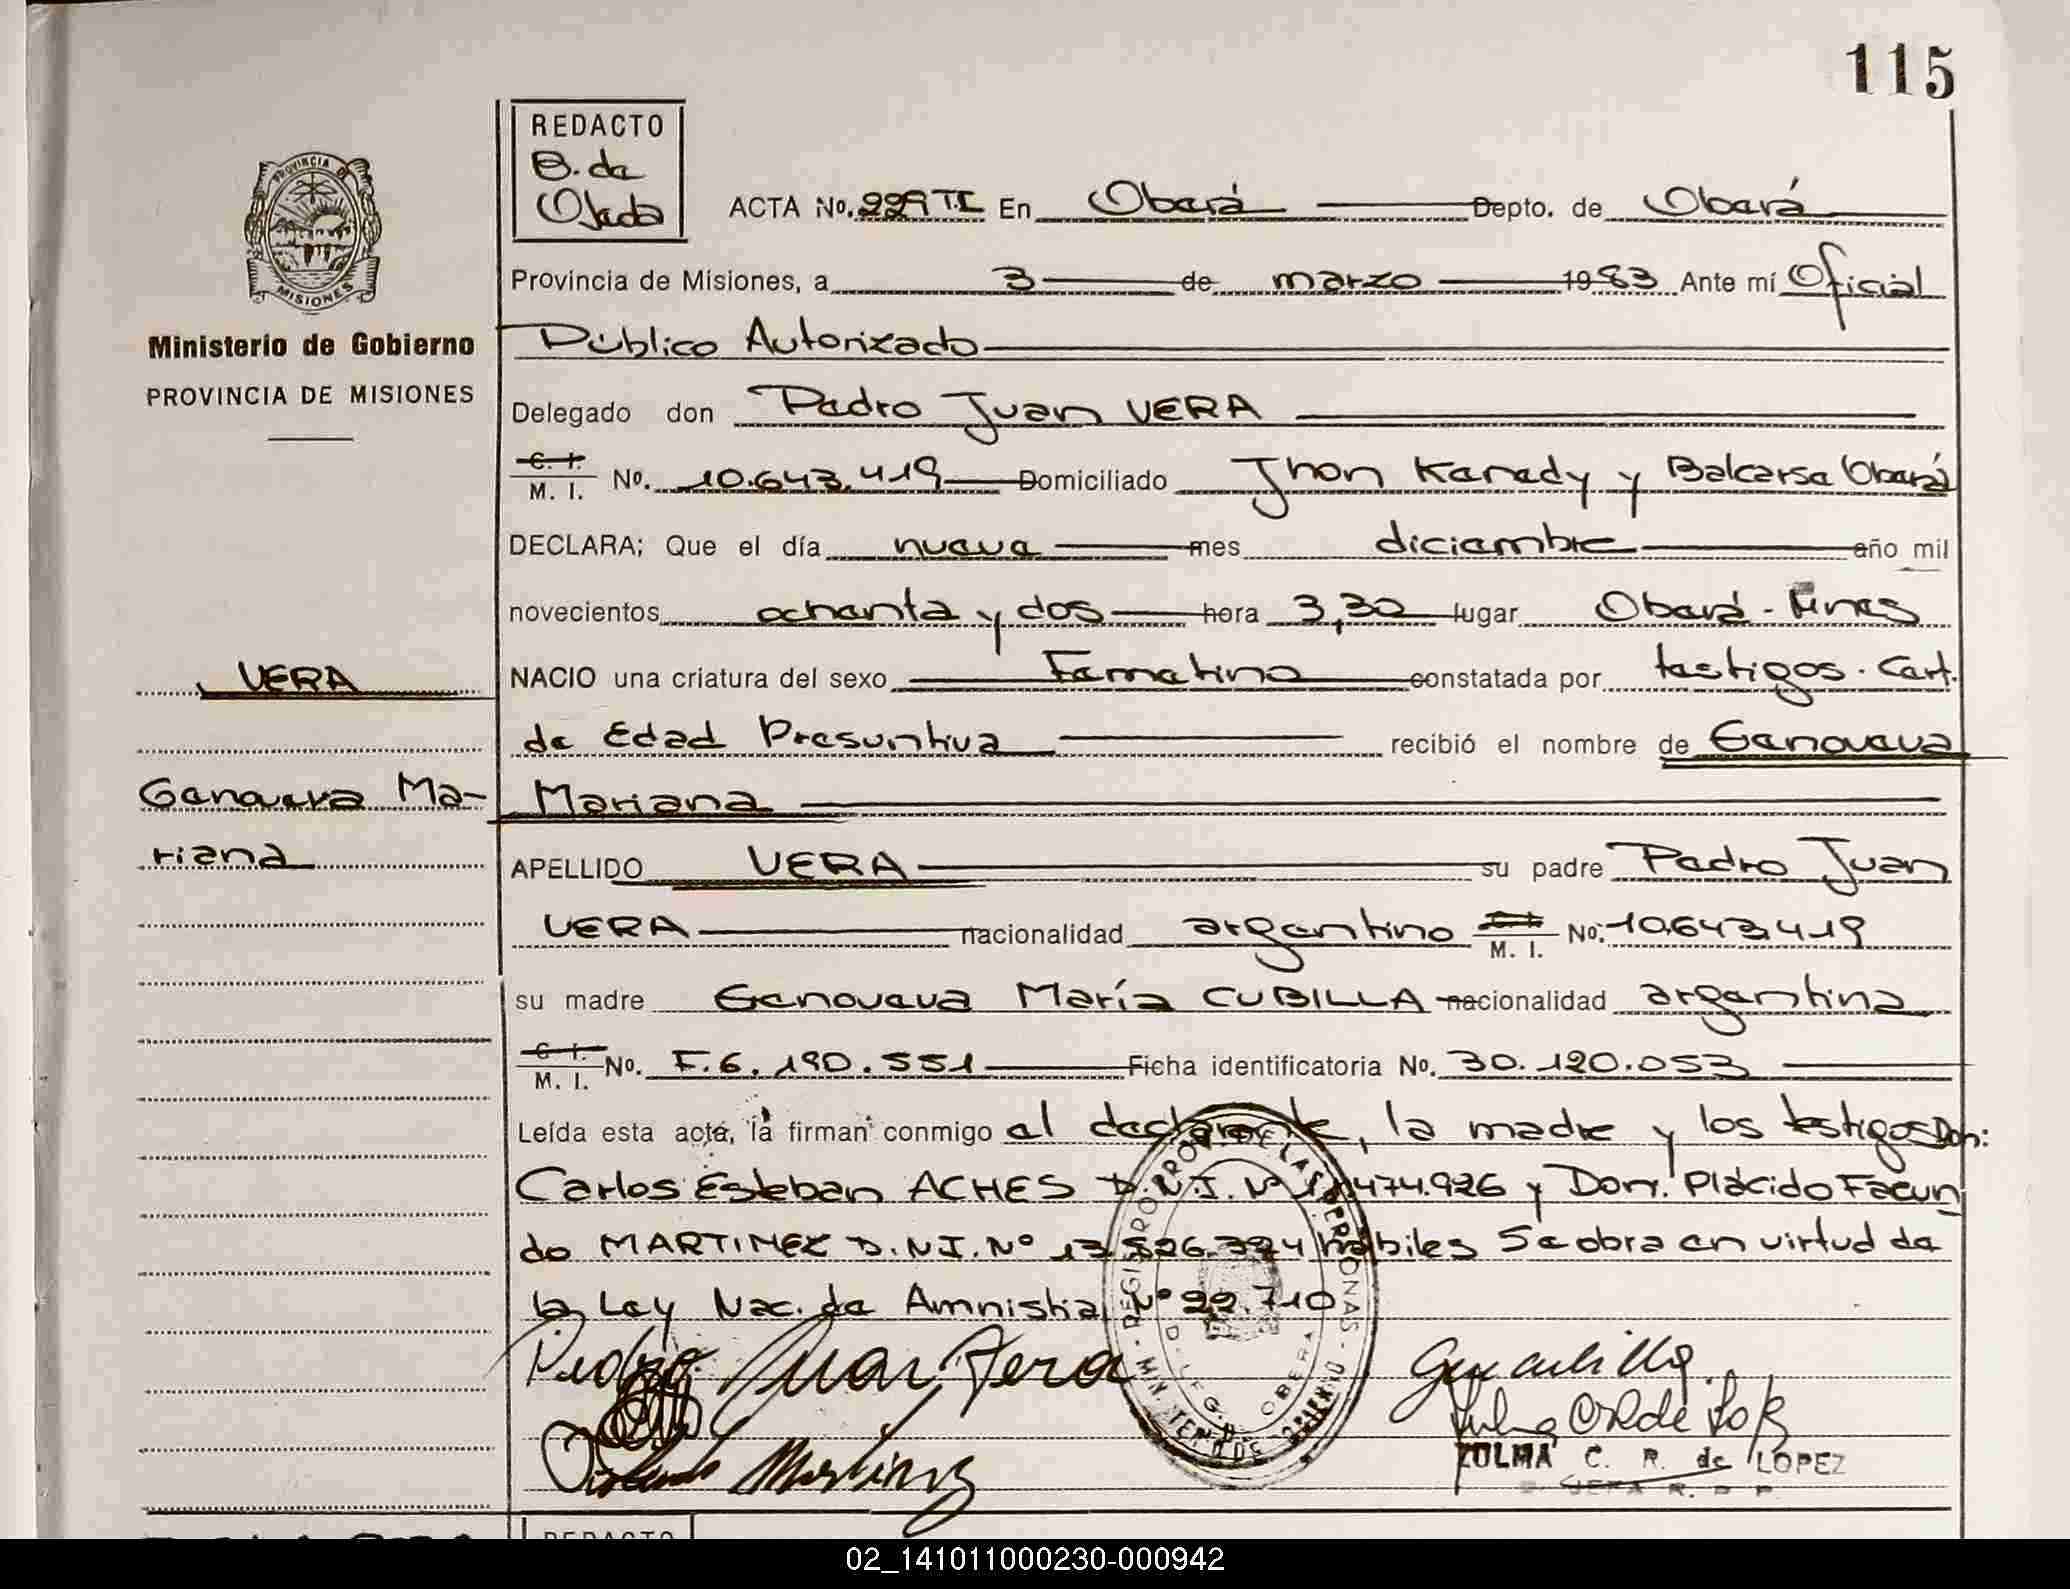 115
REDACTO
B. de
Ojeda
PROVINCIA D
MISIONES
Ministerio de Gobierno
PROVINCIA DE MISIONES
ACTA No. 229 TI En Oberá Depto. de Oberá
Provincia de Misiones, a 3 de marzo 1983 Ante mí Oficial
Público Autorizado
Delegado don Pedro Juan VERA
C. I.
M. I. No. 10.643.419 Domiciliado Jhon Kenedy y Balcarse Oberá
DECLARA; Que el día nueve mes diciembre año mil
novecientos ochenta y dos hora 3,30 lugar Oberá - Mnes
VERA
NACIO una criatura del sexo Femenino constatada por testigos. Cert.
de Edad Presuntiva recibió el nombre de Genoveva
Genoveva Ma-
Mariana
riana
APELLIDO VERA su padre Pedro Juan
VERA nacionalidad argentino C. I. M. I. No. 10.643.419
su madre Genoveva María CUBILLA nacionalidad argentina
C. I.
M. I. No. F. 6.190.551 Ficha identificatoria No. 30.120.053
Leída esta acta, la firman conmigo el declarante, la madre y los testigos Don:
Carlos Esteban ACHES D.N.I. Nº 474.926 y Don. Plácido Facun
do MARTINEZ D.N.I. Nº 13.526.324 hábiles Se obra en virtud de
la Ley Nac. de Amnistia Nº 22.710
REGISTRO PROV. DE LAS PERSONAS
OBERA
Pedro Juan Vera
Martinez
ZULMA C. R. de LOPEZ
REDACTO
02_141011000230-000942